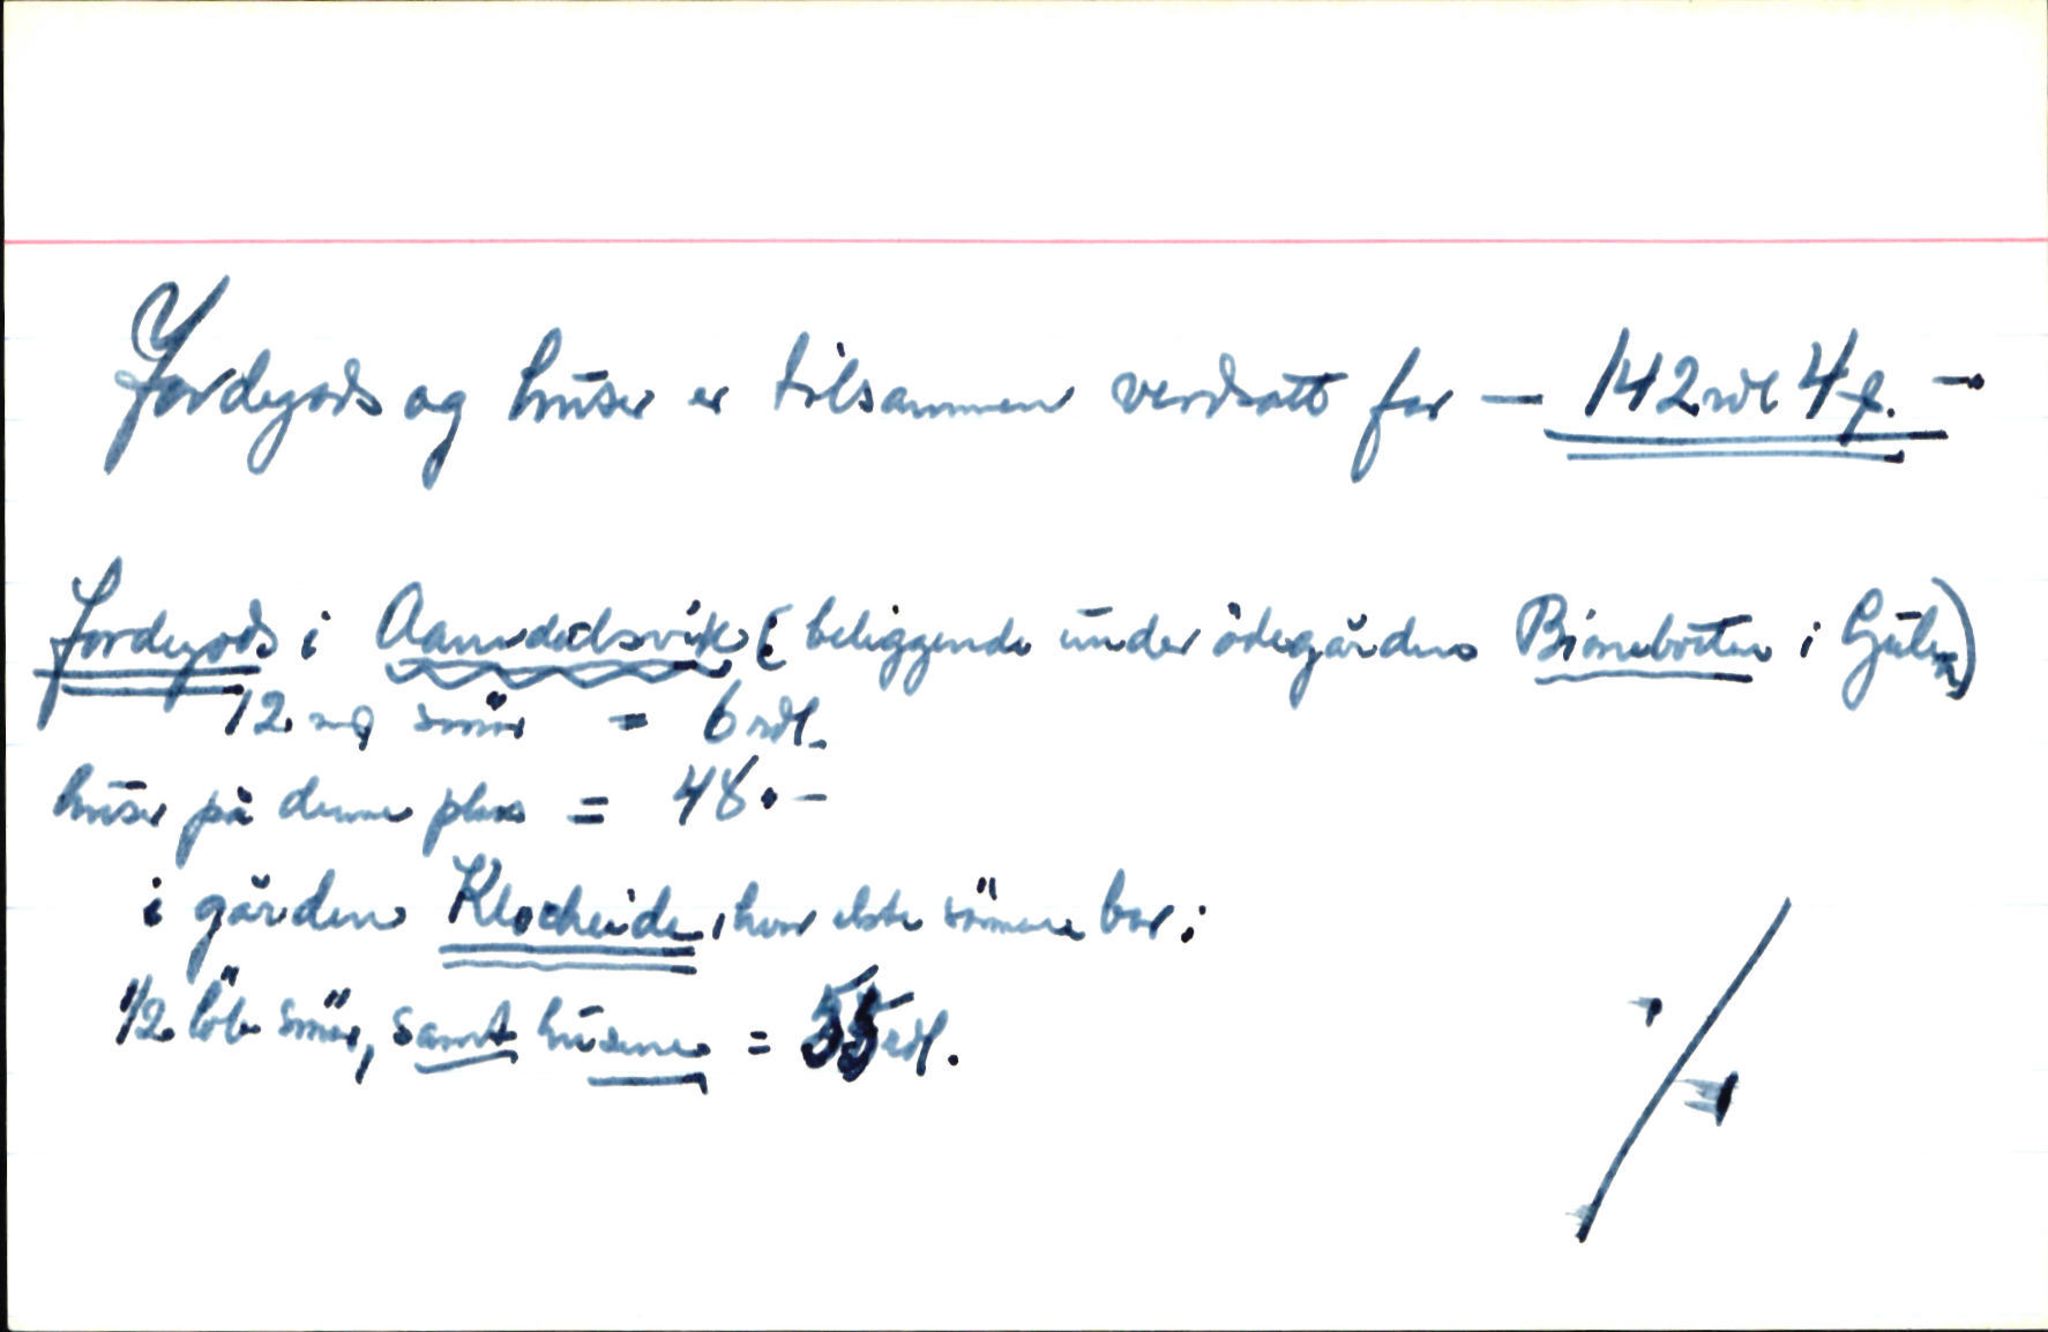 Jordegods og huser er tilsammen verdsatt for – 142 rdl 4 ƒ. –
Jordegods i Aamdedsvik (beliggende under ödegården Bioneböten i Gulen)
12 mƒ smör = 6 rdl.
huser på denne plass = 48.–
i gården Klocheide, hvor elste sönnen bor;
1/2 löb smör, samt husene = 55 rdl.